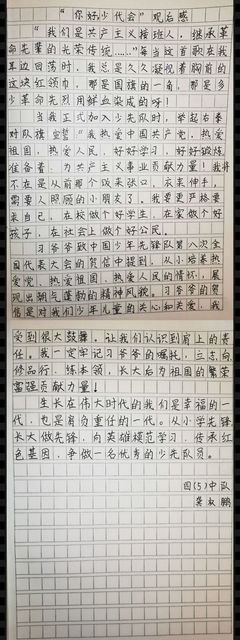 “你好少代会”观后感
“我们是共产主义接班人，继承革
命先辈的光荣传统……”每当这首歌在我
耳边回荡时，我总是久久凝视着胸前的
这块红领巾，那是国旗的一角，那是多
少革命先烈用鲜血染成的呀！
当我正式加入少先队时，举起右拳
对队旗宣誓“我热爱中国共产党，热爱
祖国，热爱人民，好好学习，好好锻炼
准备着，为共产主义事业贡献力量！我将
不在是从前那个饭来张口，衣来伸手，
需要人照顾的小朋友了，我要更严格要
求自己，在校做个好学生，在家做个好
孩子，在社会上做个好公民。
习爷爷致中国少年先锋队第八次全
国代表大会的贺信中提到，从小培养热
爱党，热爱祖国，热爱人民的情怀，展
现出朝气蓬勃的精神风貌。习爷爷的贺
信是对我们少年儿童的关心和关爱，我
受到很大鼓舞。让我们认识到肩上的责
任。我一定牢记习爷爷的嘱托，立志向
修品行，练本领，长大后为祖国的繁荣
富强贡献力量！
生长在伟大时代的我们是幸福的一
代，也是肩负重任的一代。从小学先锋
长大做先锋，向英雄模范学习，传承红
色基因，争做一名优秀的少先队员。
四(5)中队
龚 鹏